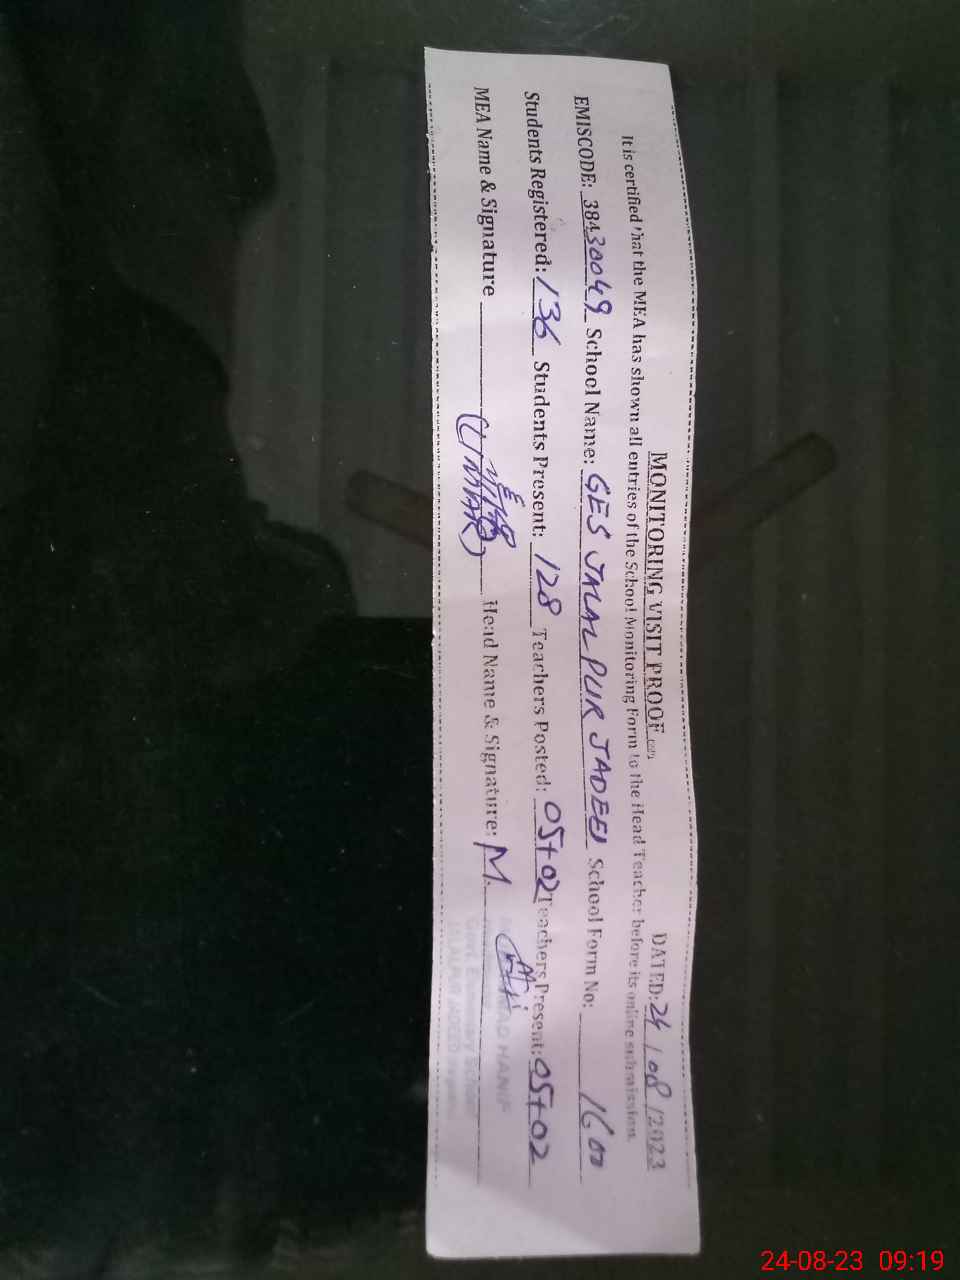 MONITORING VISIT PROOF DATED: 24/08/2023
It is certified that the MEA has shown all entries of the School Monitoring Form to the Head Teacher before its online submission.
EMISCODE: 38430049 School Name: GES JALALPUR JADEED School Form No: 1600
Students Registered: 136 Students Present: 128 Teachers Posted: 05+02 Teachers Present: 05+02
MEA Name & Signature (UMAR) Head Name & Signature: M.
HANIF
Govt. Elementary School
JALALPUR JADEED
24-08-23 09:19